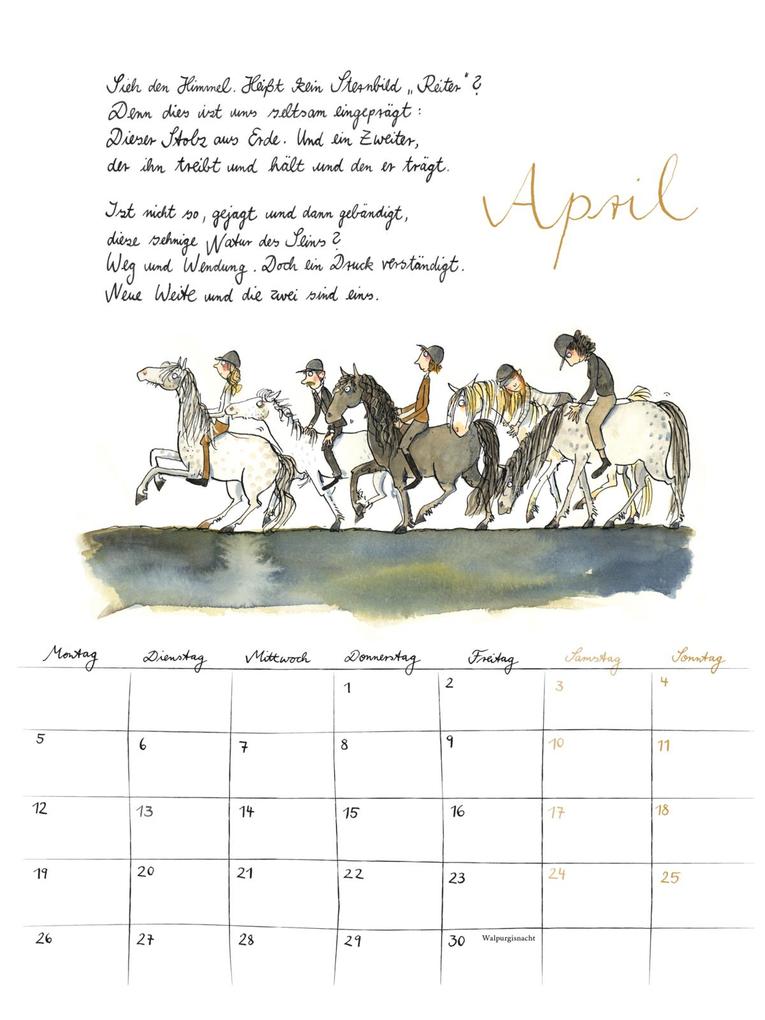 Sieh den Himmel. Heißt kein Sternbild „Reiter“?
Denn dies ist uns seltsam eingeprägt:
Dieser Stolz aus Erde. Und ein Zweiter,
der ihn treibt und hält und den er trägt.
Ist nicht so, gejagt und dann gebändigt,
diese sehnige Natur des Seins?
Weg und Wendung. Doch ein Druck verständigt.
Neue Weite und die zwei sind eins.
April
Montag Dienstag Mittwoch Donnerstag Freitag Samstag Sonntag
1 2 3 4
5 6 7 8 9 10 11
12 13 14 15 16 17 18
19 20 21 22 23 24 25
26 27 28 29 30 Walpurgisnacht